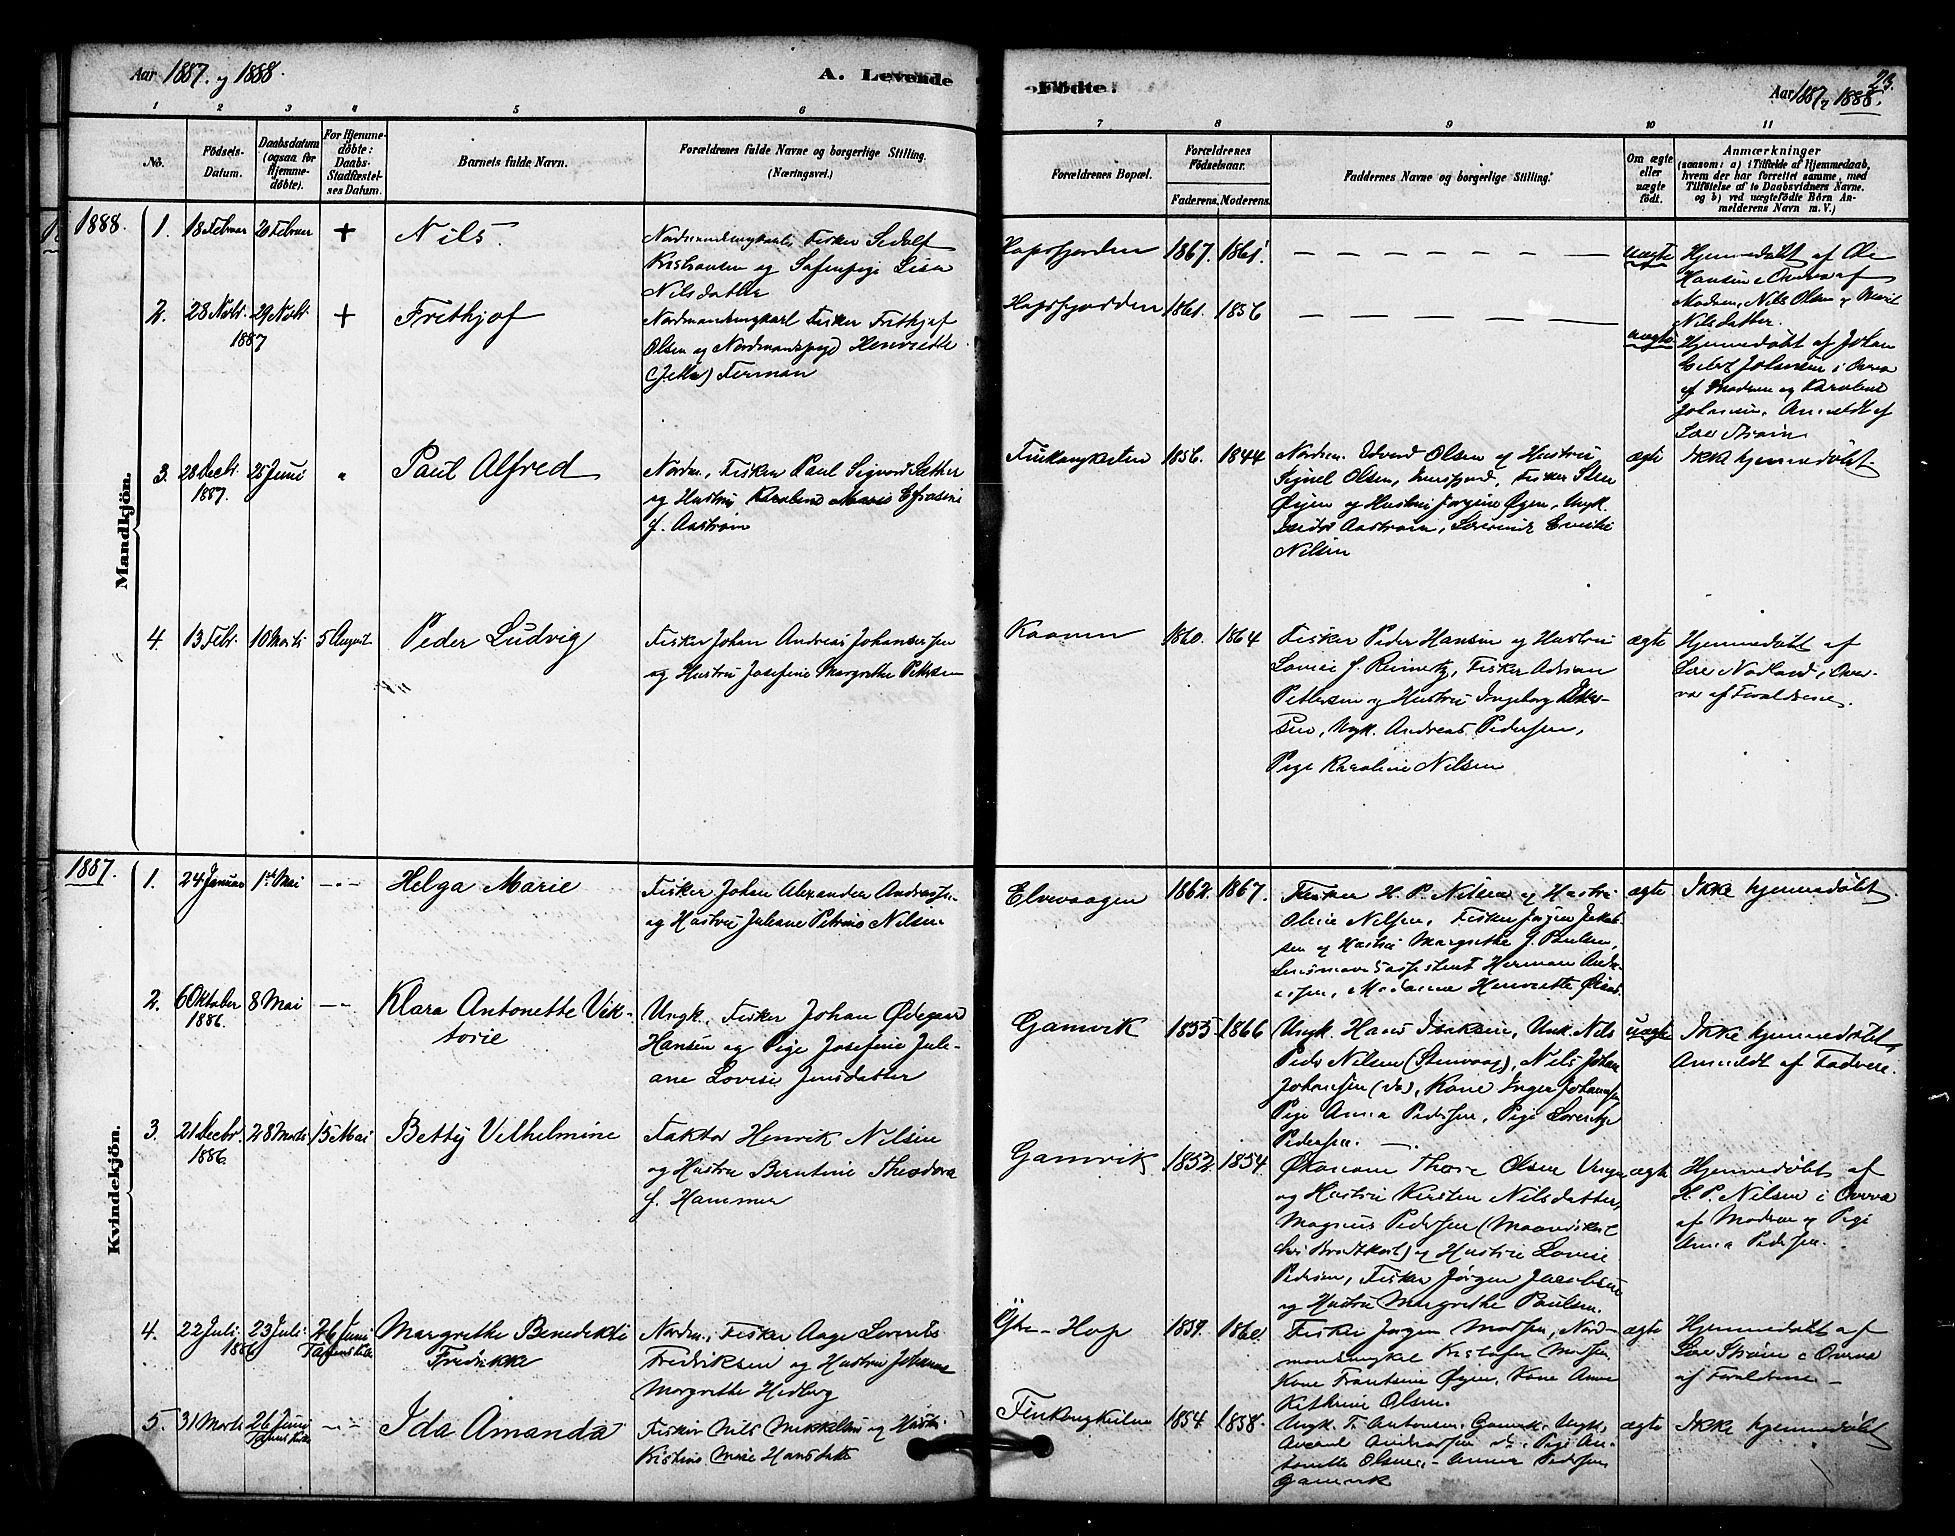 Aar 1887 og 1888.
A. Levende
Födte.
Aar 1887 og 1888.
23.
1 2 3 4 5 6 7 8 9 10 11
No.
Födsels-
Datum.
Daabsdatum
(ogsaa for
Hjemme-
döbte).
For Hjemme-
döbte:
Daabs-
Stadfæstel-
ses Datum.
Barnets fulde Navn.
Forældrenes fulde Navne og borgerlige Stilling.
(Næringsvei.)
Forældrenes Bopæl.
Forældrenes
Födselsaar.
Faderens.
Moderens.
Faddernes Navne og borgerlige Stilling.
Om ægte
eller
uægte
födt.
Anmærkninger
(saasom: a) i Tilfælde af Hjemmedaab,
hvem der har forrettet samme, med
Tilföielse af to Daabsvidners Navne.
og b) ved uægtefödte Börn An-
melderens Navn m. V.)
Mandkjön.
1888.
1. 18 Februar 20 Februar + Nils.
Fisker Sedolf
Kristiansen og Lisa
Nilsdatter
Hopsfjorden 1867. 1861.
uægte
Hjemmedøbt af Ole
Hansen i Overvær af
Moderen, Nils Olsen og
Nilsdatter.
2. 28 Novbr. 1887 29 Novbr. + Frithjof
Fisker Frithjof
Olsen og Henriette
Hopsfjorden 1861. 1856
uægte
Hjemmedøbt af Johan
Johansen i Overv.
af Moderen og Karoline
Johansen. Anmeldt af
3. 28 Decbr. 1887. 25 Juni " Paul Alfred
Nordm., Fisker Paul Sigvard
og Hustru Karoline Marie
f. Aastrøm
Finkongkeilen 1856. 1844
Nordm. Edvard Olsen og Hustru
Signel Olsen, Fisker
og Hustru Jørgine Øyen, Ungk.
Aastrøm,
Nilsen
ægte
Ikke hjemmedøbt
4. 13 Febr. 10 Marts 5 August Peder Ludvig
Fisker Johan Andreas Johannessen
og Hustru Josefine Margrethe Pettersen
Kaaven 1860. 1864
Fisker Peder Hansen og Hustru
Lovise f. Fisker Adrian
Pettersen og Hustru Ingeborg Petter-
sen, Ungk. Andreas Pedersen,
Pige Karoline Nilsen
ægte
Hjemmedøbt af
Nodland i Over-
vær af Forældrene.
Kvindekjön.
1887.
1. 24 Januar 1ste Mai Helga Marie
Fisker Johan Alexander Andreassen
og Hustru Juliane Petrine Nilsen
Elvevaagen 1862. 1867.
Fisker H. P. Nilsen og Hustru
Olsine Nilsen, Fisker Jørgen Jakob-
sen og Hustru Margrethe f. Paulsen,
Lensmandsassistent Herman Andre-
assen, Madame Henriette
ægte
Ikke hjemmedøbt.
2. 6 Oktober 1886. 8 Mai Klara Antonette Vik-
torie
Ungk., Fisker Johan Ødegaard
Hansen og Pige Josefine Juli-
ane Lovise Jensdatter
Gamvik 1855. 1866
Ungk. Hans Isaksen, Ungk. Nils
Peder Nilsen (Stenvaag), Nils Johan
Johansen (do), Kone Inger Johansen
Pige Anna Pedersen, Pige Lorentze
Pedersen.
uægte
Ikke hjemmedøbt.
Anmeldt af Fadrene.
3. 21 Decbr. 1886. 28 Marts 15 Mai Betty Vilhelmine
Faktor Henrik Nilsen
og Hustru Berntine Theodora
f. Hammer
Gamvik 1852. 1854.
Thore Olsen
og Hustru Kirsten Nilsdatter,
Magnus Pedersen
og Hustru Lovise
Pedersen, Fisker Jørgen Jacobsen
og Hustru Margrethe Paulsen.
ægte
Hjemmedøbt af
H. P. Nilsen i Overvær
af Moderen og Pige
Anna Pedersen.
4. 22 Juli 1886 23 Juli 26 Juni Margrethe Benedikte
Fredrikke
Nordm., Fisker Aage Lorents
Fredriksen og Hustru Johanne
Margrethe Hedberg
Ytre-Hop 1859. 1860.
Fisker Jørgen Madsen, Nord-
Kristofer Madsen
Kone Øyen, Kone Anne
Kathrine Olsen.
ægte
Hjemmedøbt af
Strøm i Overvær
af Forældrene
5. 31 Marts 26 Juni Ida Amanda
Fisker Nils Mikkelsen og Hustru
Kristine Marie Hansdatter
Finkongkeilen 1854. 1858.
Ungk. T. Antonsen, Gamvik, Ungk.
Andreassen do., Pige An-
tonette Olsen, Anna Pedersen
Gamvik
ægte
Ikke hjemmedøbt